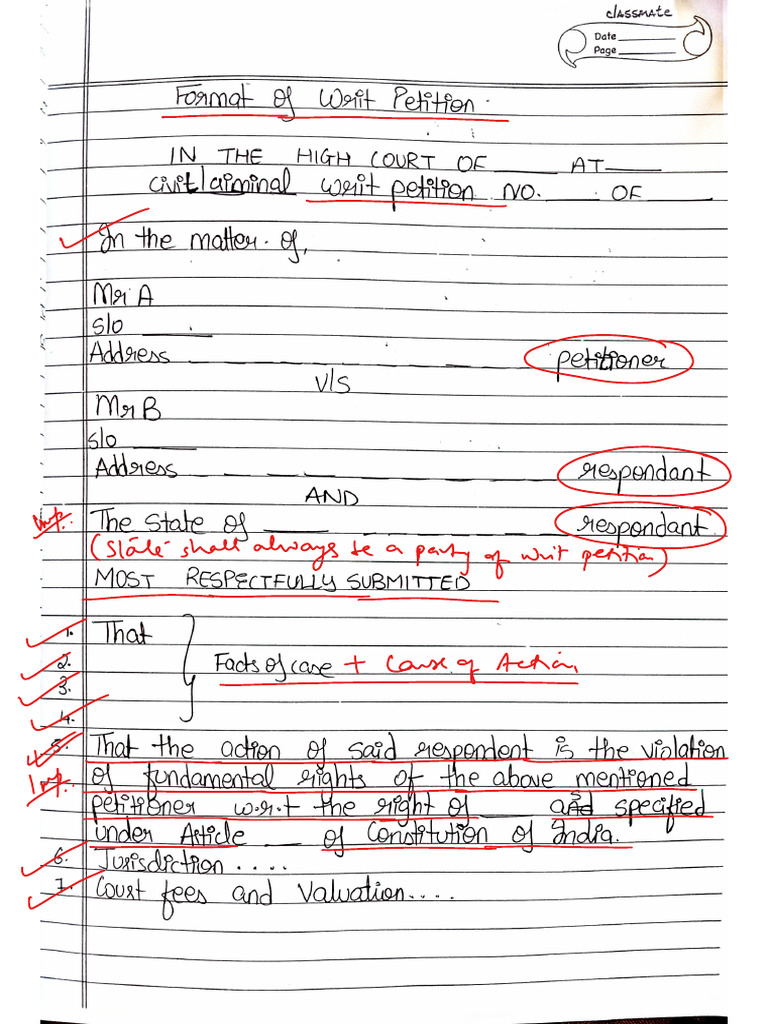 classmate
Date
Page
Format of Writ Petition.
IN THE HIGH COURT OF ____ AT ____
civil/criminal writ petition NO. ____ OF ____
In the matter of,
Mr A
s/o ____
Address ____ petitioner
V/S
Mr B
s/o ____
Address ____ respondant
AND
Imp. The State of ____ respondant.
(State shall always be a party of writ petition)
MOST RESPECTFULLY SUBMITTED
1. That
2. Facts of case + Cause of Action
3.
4.
5. That the action of said respondent is the violation
Imp. of fundamental rights of the above mentioned
petitioner w.r.t the right of ____ and specified
under Article ____ of Constitution of India.
6. Jurisdiction ....
7. Court fees and Valuation....